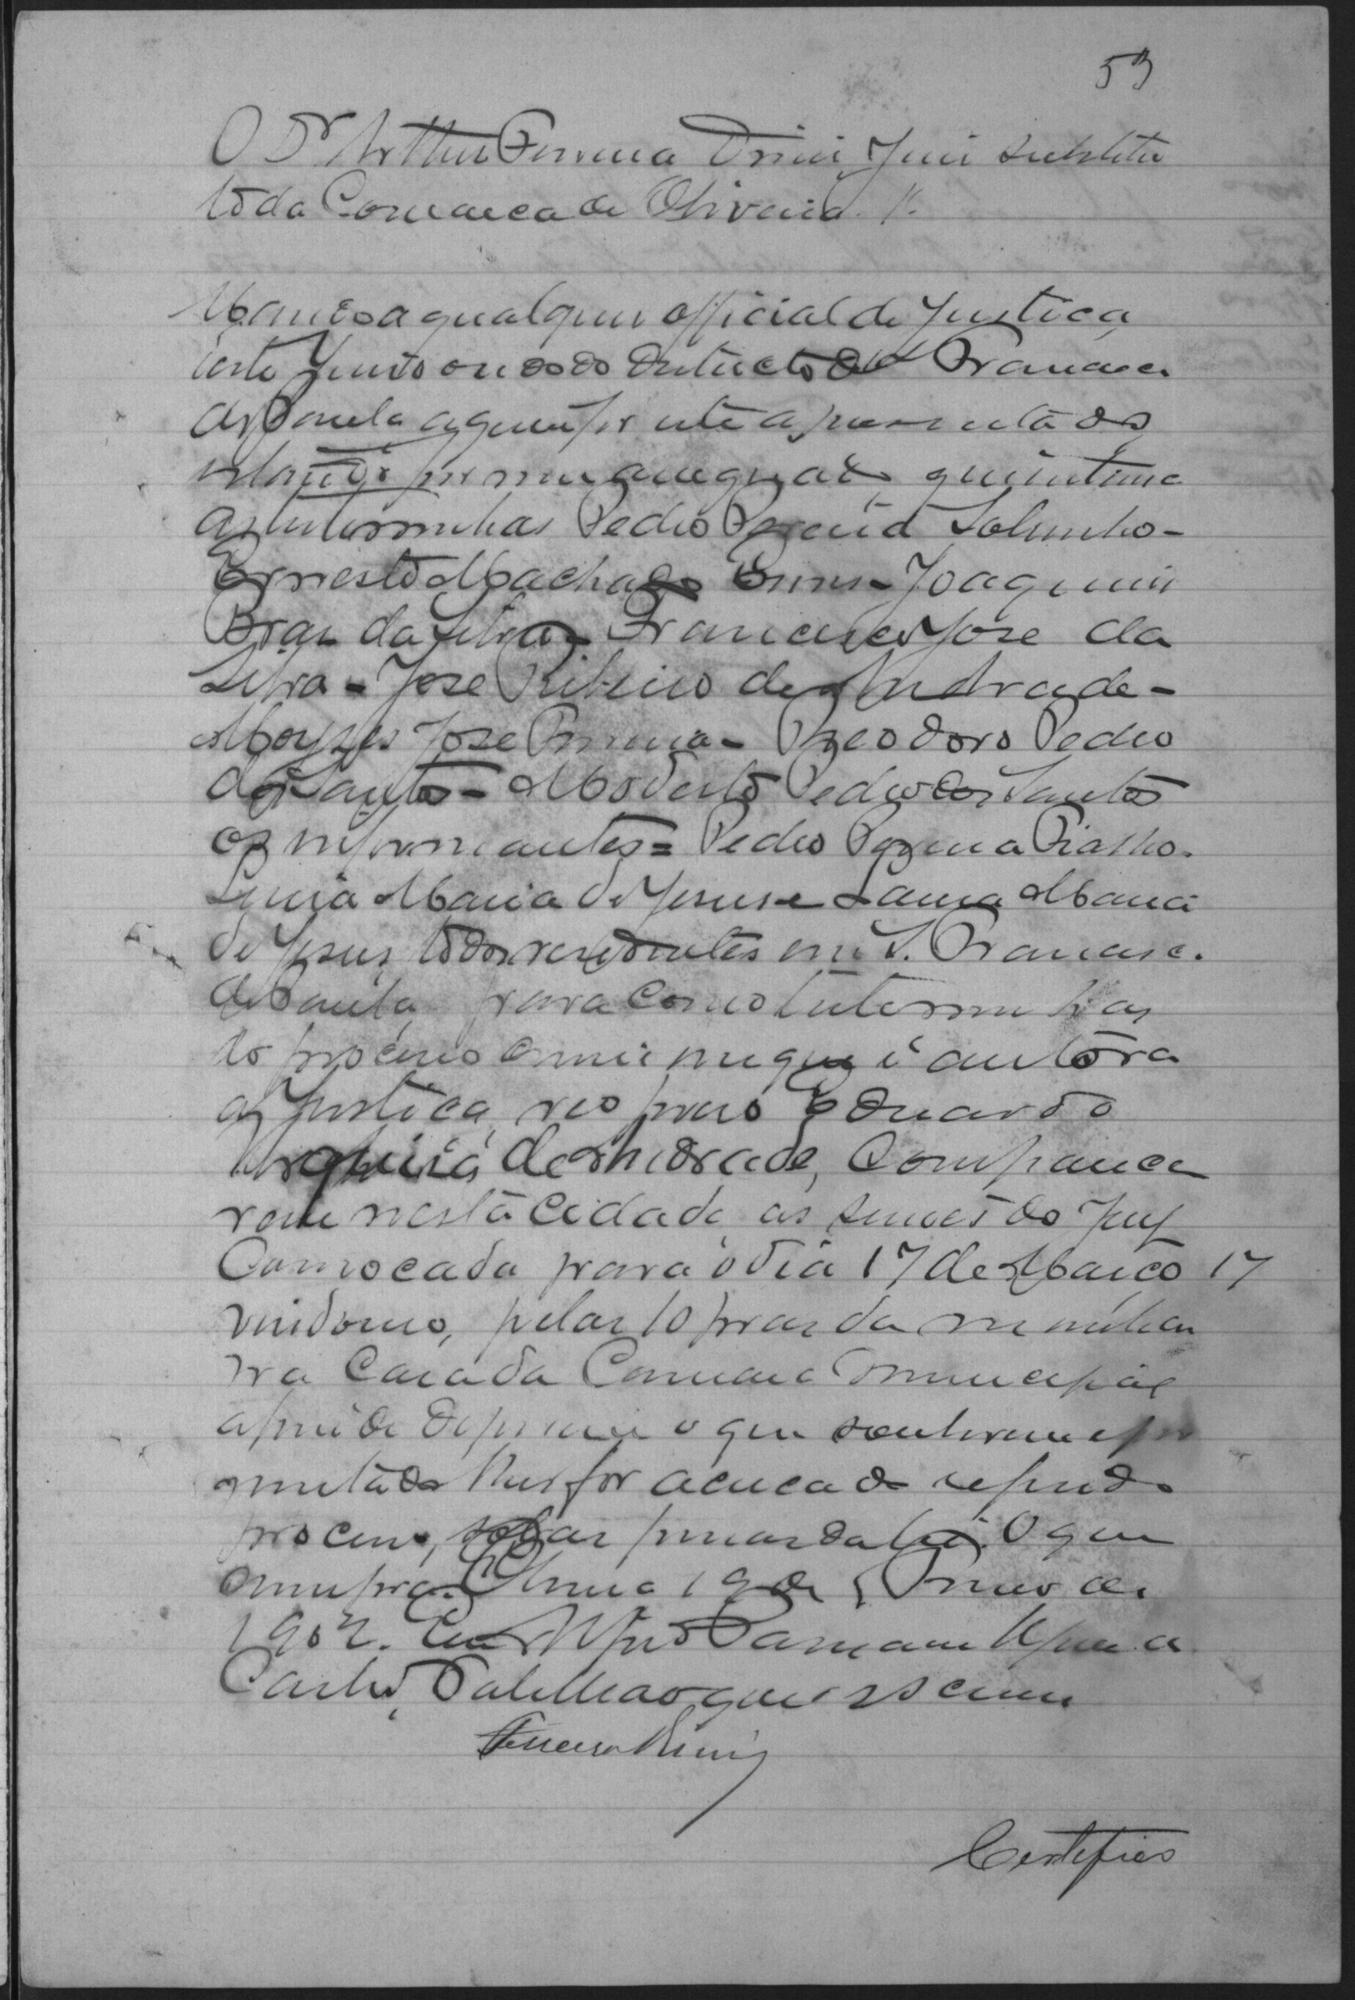 53
O Dr Arthur Ferreira Diniz, Juiz substitu
to da Comarca de Oliveira.
Mando a qualquer official de justiça
deste Juizo ou do districto de S. Francisco
de Paula a quem for este apresentado
indo por mim assignado, que intime
as testemunhas Pedro Pereira Sobrinho -
Ernesto Machado Joaquim
Braz da Silva - Francisco José da
Silva - José Ribeiro de Andrade -
Moyses José Ferreira - Theodoro Pedro
dos Santos - Modesto Pedro dos Santos
os informantes = Pedro Pereira Riacho.
Luzia Maria de Jesus e Laura Maria
de Jesus, todos residentes em S. Francisco
de Paula, para como testemunhas
do processo crime em que é autora
a Justiça, reo preso Eduardo
de Andrade, compareça
rem nesta Cidade, as sessões do Jury
Convocada para o dia 17 de Março 17
vindouro, pelas 10 horas da manhã
na Casa da Camara Municipal
afim de deporem o que souberem e per
guntado lhes for acerca do referido
processo, sob as penas da lei. O que
cumpra. Oliveira 19 de Fevereiro de
1902. Eu
Carlos que escrevi
Ferreira Diniz
Certifico